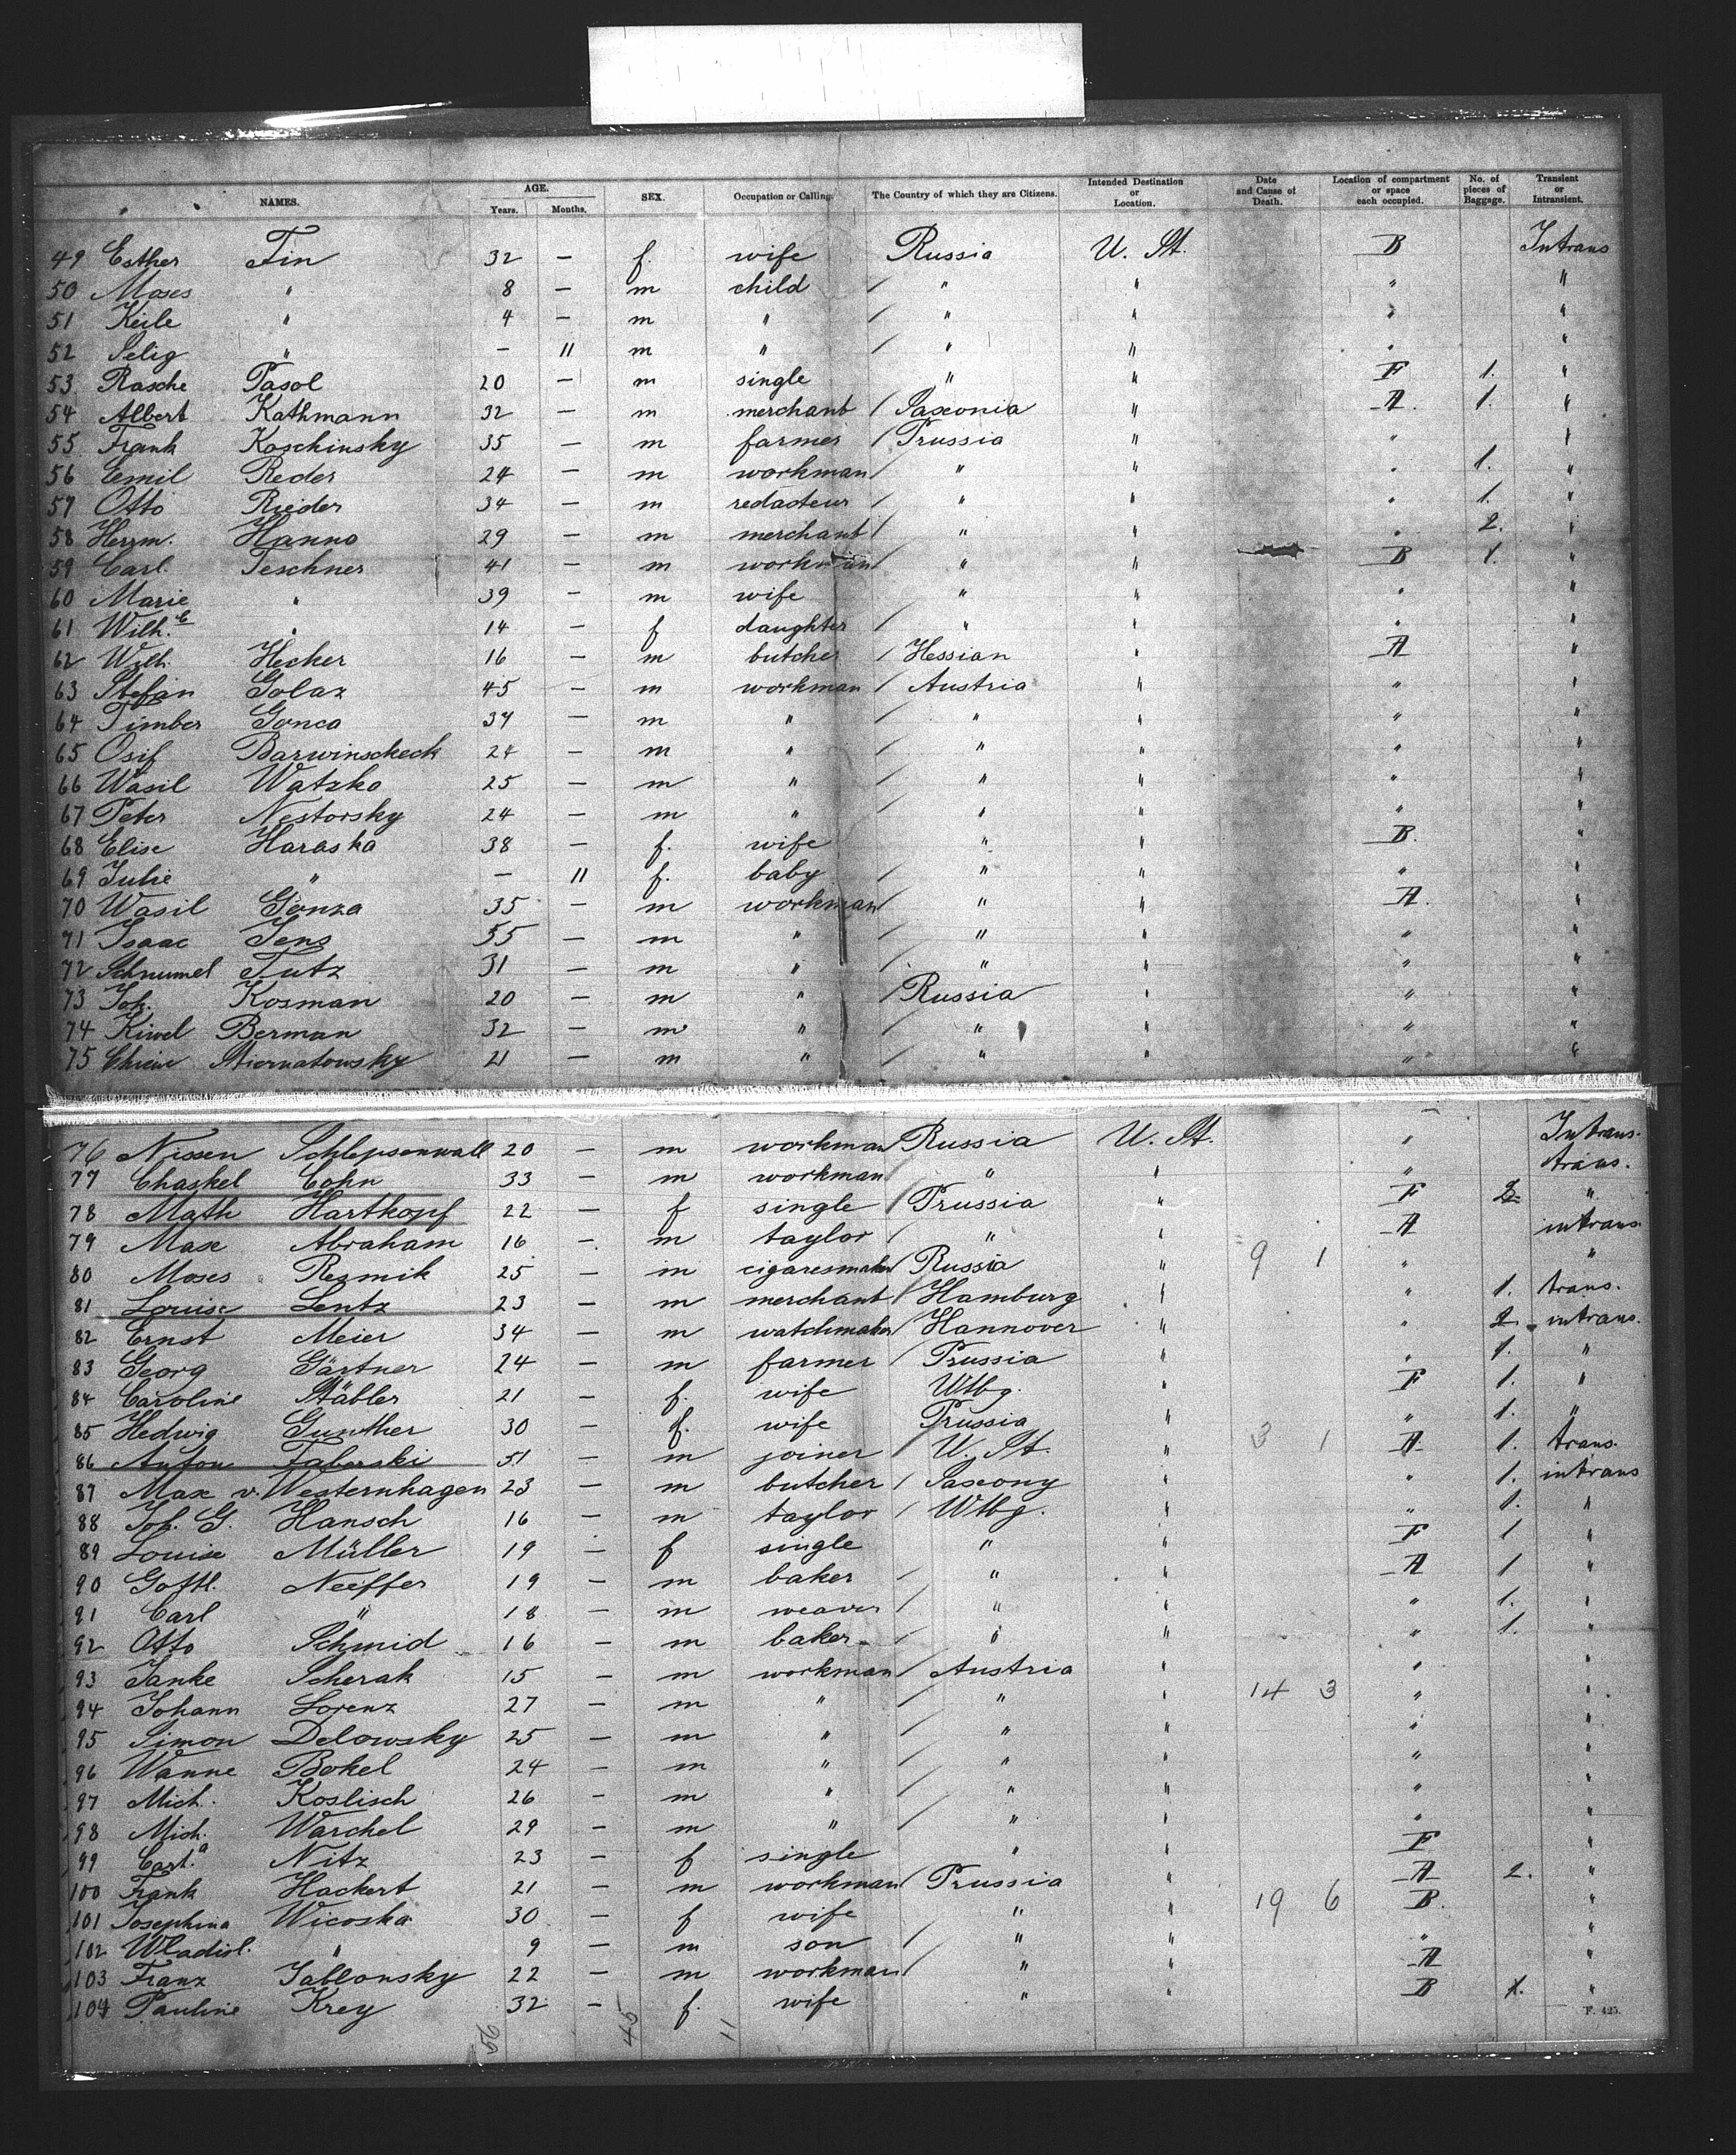 NAMES. AGE. Years. Months. SEX. Occupation or Calling. The Country of which they are Citizens. Intended Destination or Location. Date and Cause of Death. Location of compartment or space each occupied. No. of pieces of Baggage. Transient or Intransient.
49 Esther Fin 32 — f. wife Russia U. St. B Intrans
50 Moses " 8 — m child / " " " "
51 Keile " 4 — m " / " " " "
52 Selig " — 11 m " / " " " "
53 Rasche Pasol 20 — m single " " F 1. "
54 Albert Kathmann 32 — m merchant / Saxonia " A. 1. "
55 Frank Koschinsky 35 — m farmer / Prussia " " "
56 Eemil Reder 24 — m workman / " " " 1. "
57 Otto Rieder 34 — m redacteur / " " " 1. "
58 Herrm. Hanno 29 — m merchant / " " " 2. "
59 Carl. Teschner 41 — m workman / " " B 1. "
60 Marie " 39 — m wife " " " "
61 Wilh.e " 14 — f daughter / " " " "
62 Wilh. Hecker 16 — m butcher / Hessian " A "
63 Stefan Golaz 45 — m workman / Austria " " "
64 Timber Gonca 34 — m " / " " " "
65 Osif Barwinscheck 24 — m " / " " " "
66 Wasil Watzko 25 — m " / " " " "
67 Peter Nestorsky 24 — m " / " " " "
68 Elise Haraska 38 — f. wife " " B. "
69 Julie " — 11 f. baby / " " " "
70 Wasil Gonza 35 — m workman / " " A. "
71 Isaac Jens 55 — m " / " " " "
72 Schnumel Tutz 31 — m " / " " " "
73 Joh. Kosman 20 — m " / Russia " " "
74 Kiwel Berman 32 — m " / " " " "
75 Stiernatowsky 21 — m " / " " " "
76 Nissen Schlepsenwall 20 — m workman Russia U. St. " Intrans.
77 Chaskel Cohn 33 — m workman " " " trans.
78 Math Hartkopf 22 — f single / Prussia " F 2 "
79 Max Abraham 16 — m taylor / " " A intrans
80 Moses Resmik 25 — m cigaresmaker Russia " 9 1 " "
81 Louise Lentz 23 — m merchant / Hamburg " " 1. trans.
82 Ernst Meier 34 — m watchmaker / Hannover " " 2. intrans.
83 Georg Gärtner 24 — m farmer / Prussia " " 1. "
84 Caroline Stäbler 21 — f. wife Wtbg. " F 1. "
85 Hedwig Gunther 30 — f. wife Prussia " " 1. "
86 Anton Faberski 51 — m joiner / U. St. " 3 1 A 1. trans.
87 Max v. Westernhagen 23 — m butcher / Saxony " " 1. intrans
88 Joh. G. Hansch 16 — m taylor / Wtbg. " " 1. "
89 Louise Müller 19 — f single " " F 1 "
90 Gottl. Neeffer 19 — m baker / " " A 1 "
91 Carl " 18 — m weaver / " " " 1. "
92 Otto Schmid 16 — m baker / " " " 1. "
93 Janke Scherak 15 — m workman / Austria " " "
94 Johann Lorenz 27 — m " / " " 14 3 " "
95 Simon Delowsky 25 — m " / " " " "
96 Wanne Bokel 24 — m " / " " " "
97 Mich. Koslisch 26 — m " / " " " "
98 Mich. Warchel 29 — m " / " " " "
99 Cart.a Nitz 23 — f single " " F "
100 Frank Hackert 21 — m workman / Prussia " A 2. "
101 Josephina Wicoska 30 — f wife " " 19 6 B. "
102 Wladisl. " 9 — m son / " " " "
103 Franz Jablonsky 22 — m workman / " " A "
104 Pauline Krey 32 — f. wife " " B 1. "
F. 425.
56 45 11